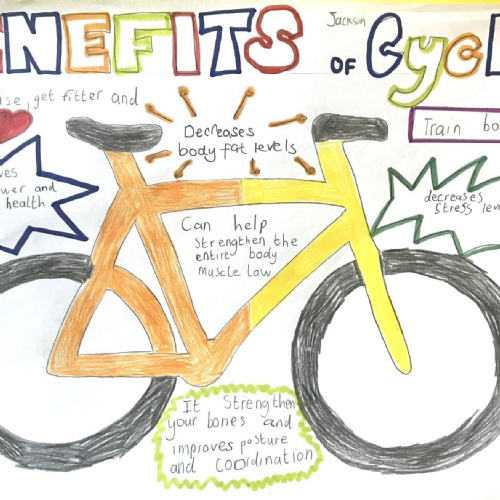 ENEFITS OF Cyc
Jackson
ise, get fitter and
Decreases
body fat levels
Train bo
ves
wer and
health
decreases
stress leve
Can help
strengthen the
entire body
muscle low
It Strengthen
your bones and
improves posture
and coordination